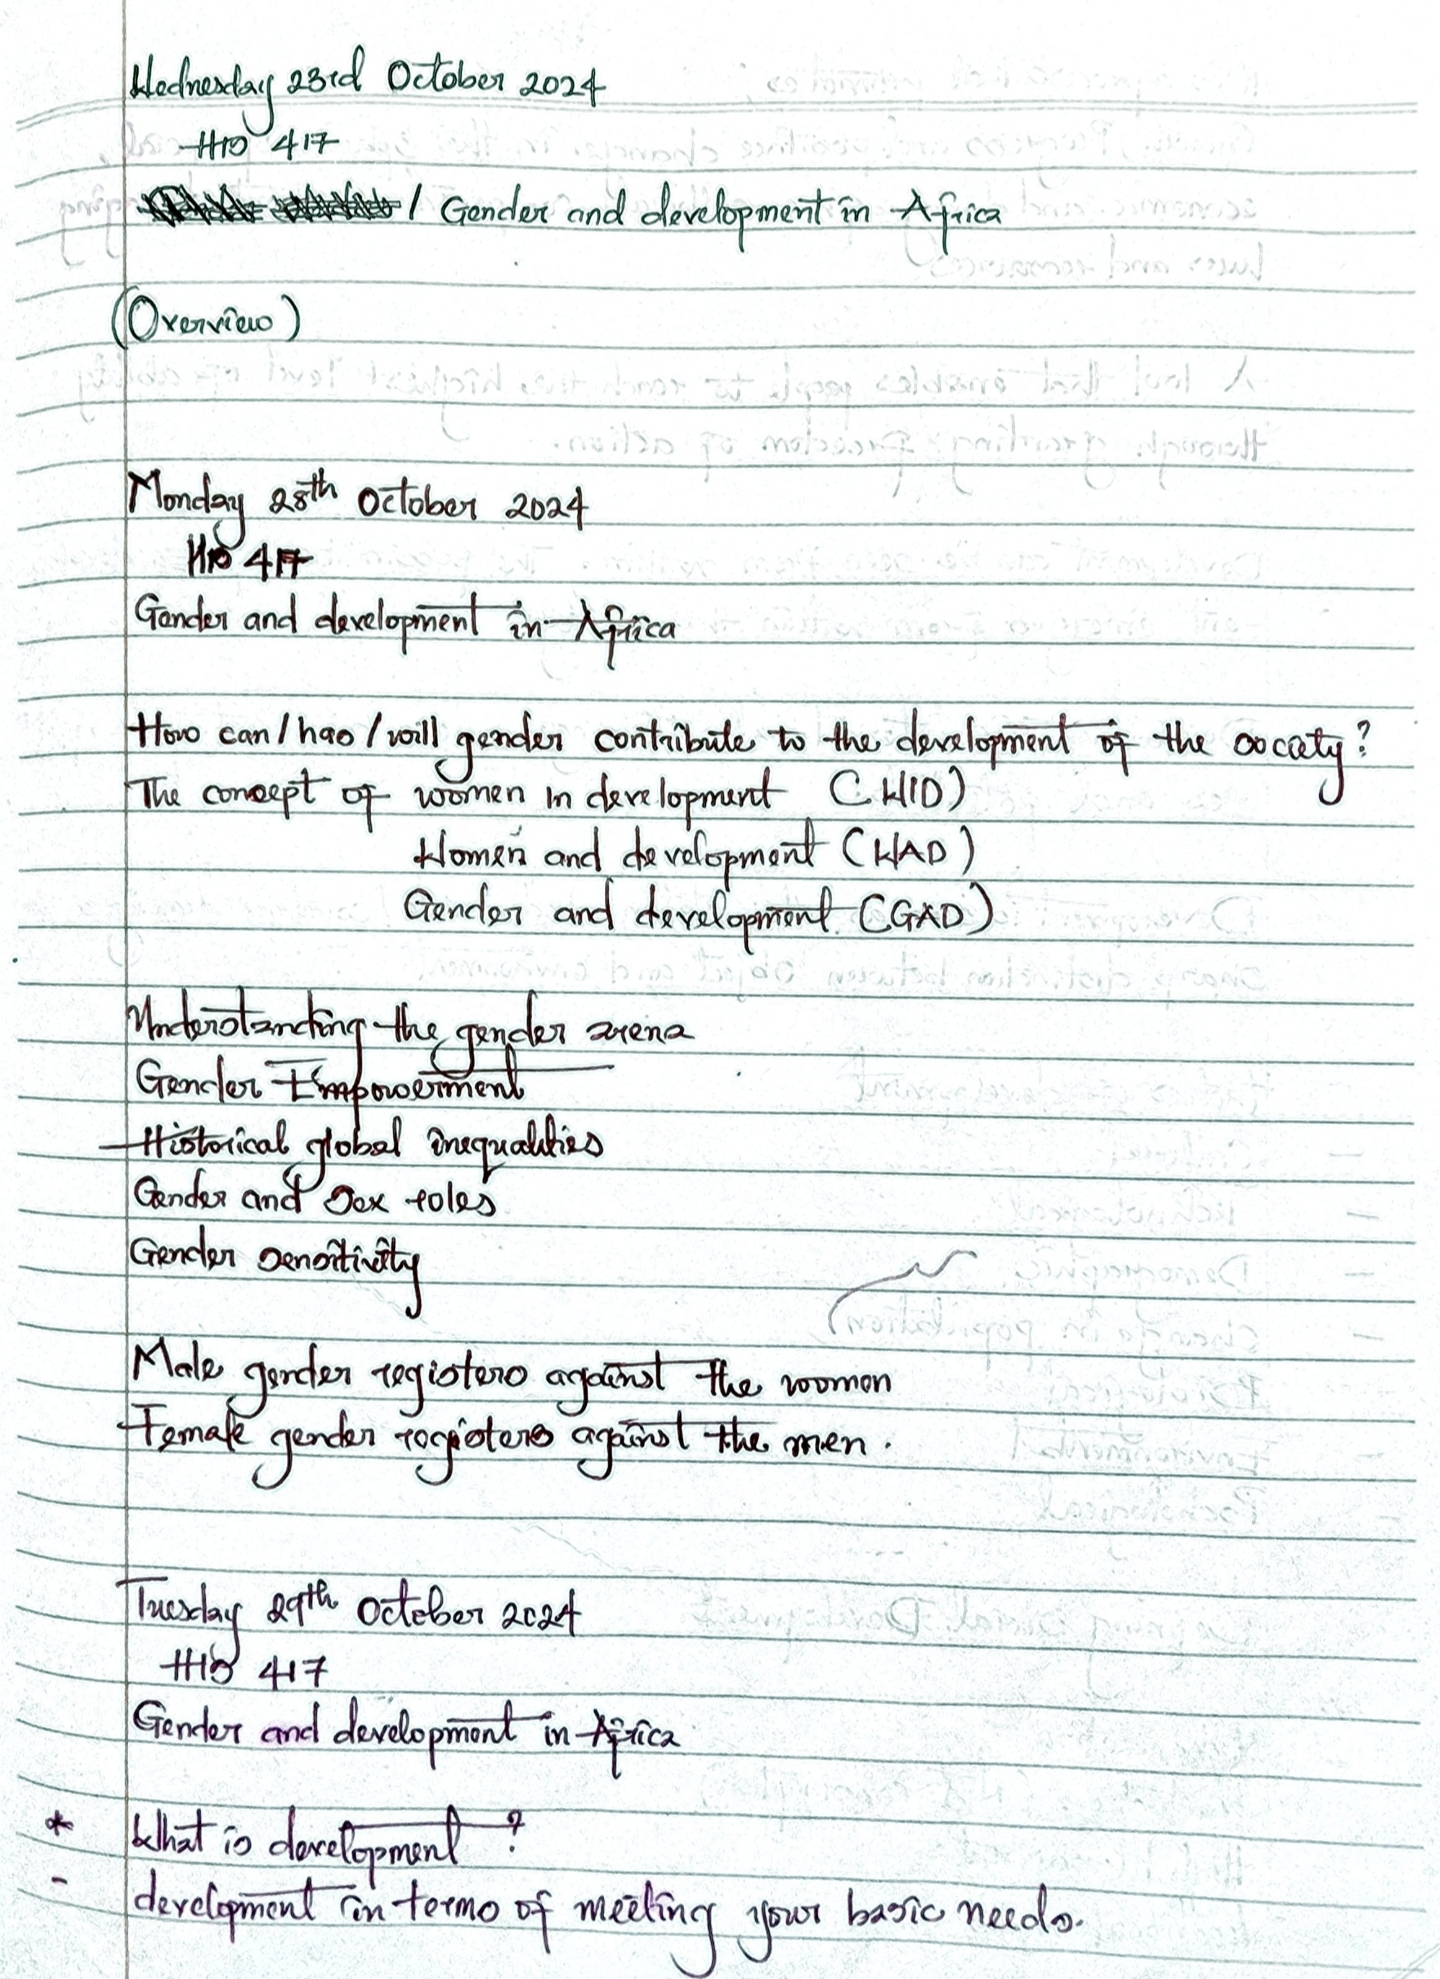 Wednesday 23rd October 2024
HIS 417
/ Gender and development in Africa
(Overview)
Monday 28th October 2024
HIS 417
Gender and development in Africa
How can/has/will gender contribute to the development of the socaty?
The concept of women in development (WID)
Women and development (WAD)
Gender and development (GAD)
Understanding the gender arena
Gender Empowerment
Historical global inequalities
Gender and Sex roles
Gender sensitivity
Male gender registers against the women
Female gender registers against the men.
Tuesday 29th October 2024
HIS 417
Gender and development in Africa
* What is development?
- development in terms of meeting your basic needs.